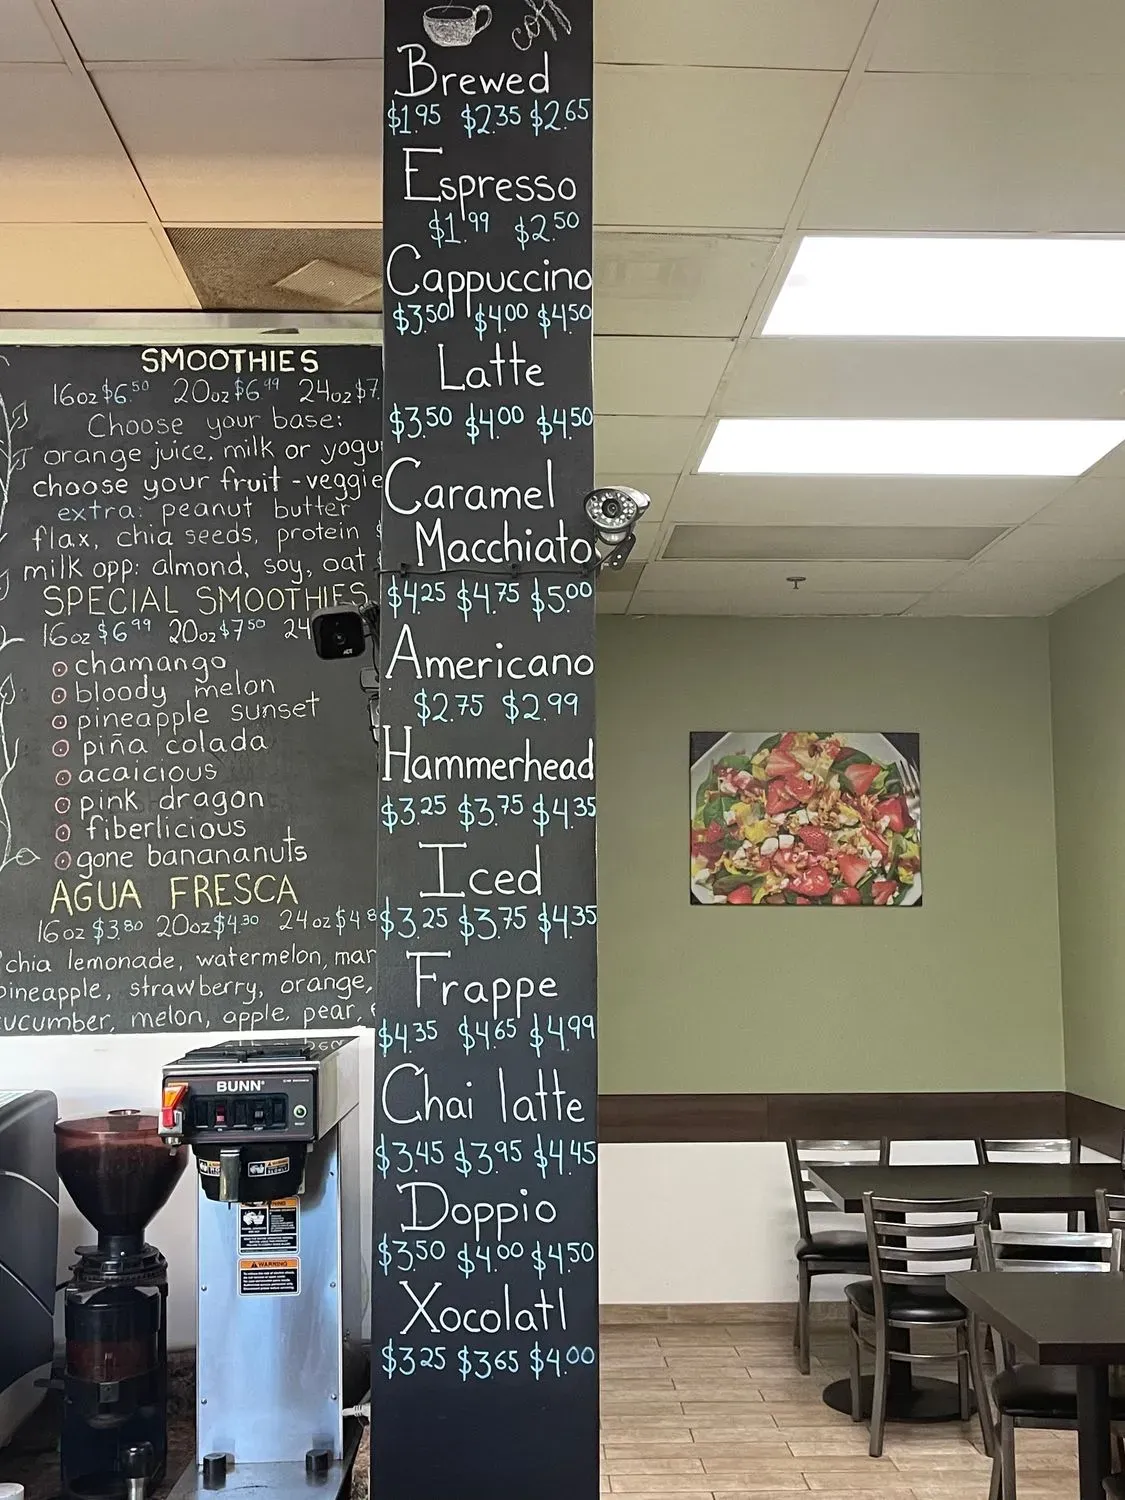 SMOOTHIES
16oz $6.50 20oz $6.99 24oz $7.
Choose your base:
orange juice, milk or
choose your fruit - veggie
extra: peanut butter
flax, chia seeds, protein
milk opp: almond, soy, oat
SPECIAL SMOOTHIES
16oz $6.99 20oz $7.50 24
chamango
bloody melon
pineapple sunset
piña colada
acaicious
pink dragon
fiberlicious
gone banananuts
AGUA FRESCA
16oz $3.80 20oz $4.30 24oz $4.8
chia lemonade, watermelon,
pineapple, strawberry, orange,
cucumber, melon, apple, pear,
BUNN
WARNING
coff
Brewed
$1.95 $2.35 $2.65
Espresso
$1.99 $2.50
Cappuccino
$3.50 $4.00 $4.50
Latte
$3.50 $4.00 $4.50
Caramel
Macchiato
$4.25 $4.75 $5.00
Americano
$2.75 $2.99
Hammerhead
$3.25 $3.75 $4.35
Iced
$3.25 $3.75 $4.35
Frappe
$4.35 $4.65 $4.99
Chai latte
$3.45 $3.95 $4.45
Doppio
$3.50 $4.00 $4.50
Xocolatl
$3.25 $3.65 $4.00